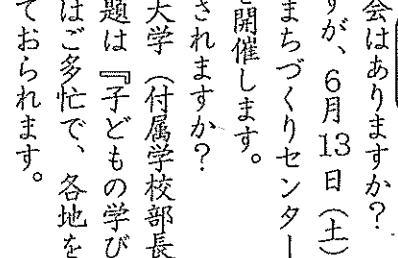 会はありますか？
すが、６月13日（土）
まちづくりセンター
を開催します。
されますか？
大学（付属学校部長
題は『子どもの学び
はご多忙で、各地を
ておられます。